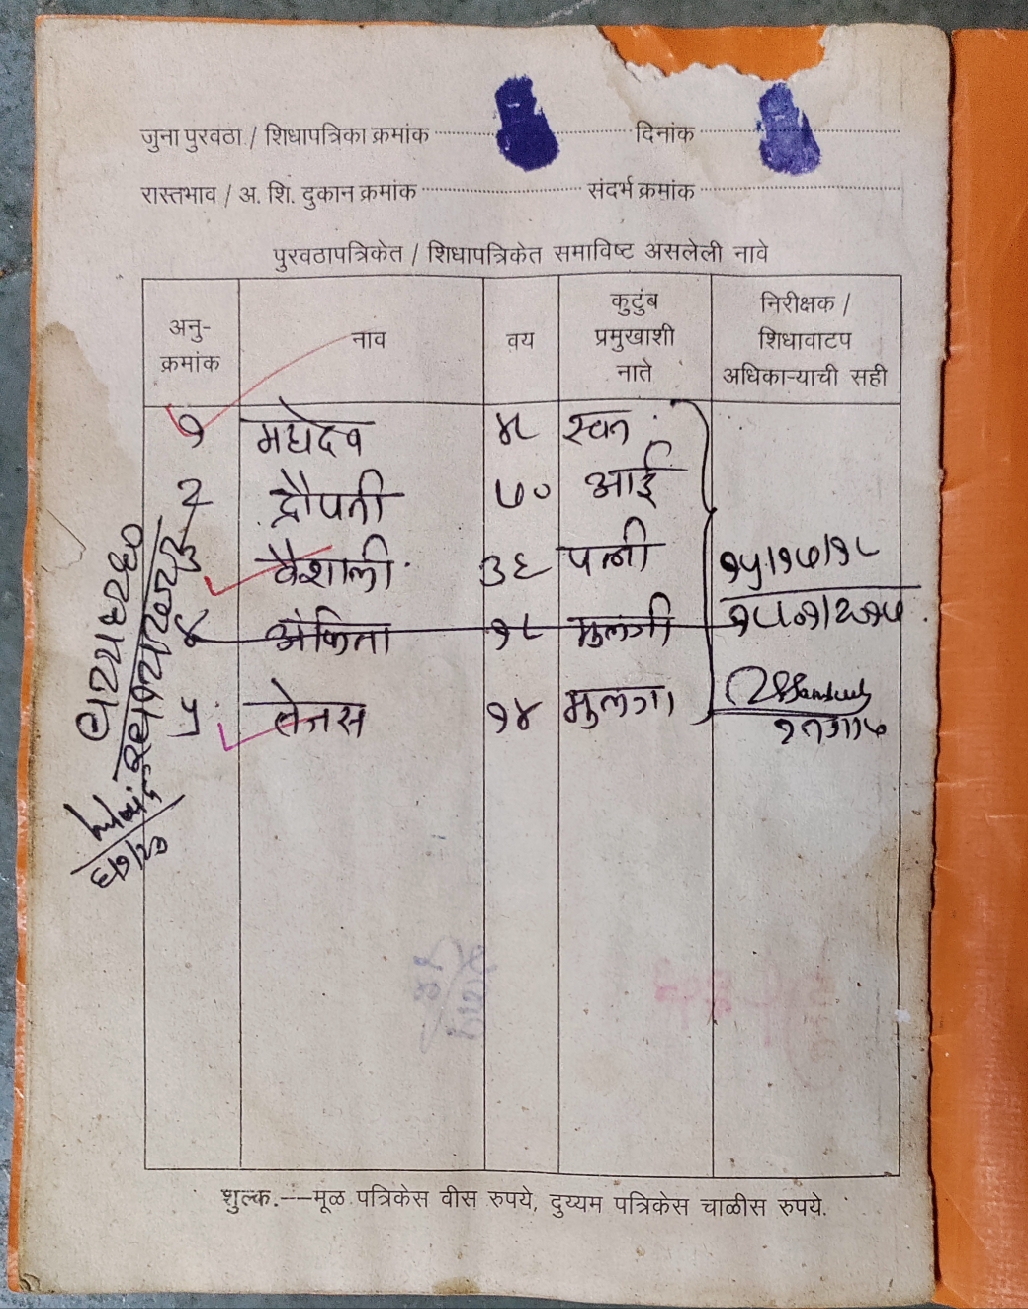 जुना पुरवठा / शिधापत्रिका क्रमांक दिनांक
रास्तभाव / अ. शि. दुकान क्रमांक संदर्भ क्रमांक
पुरवठापत्रिकेत / शिधापत्रिकेत समाविष्ट असलेली नावे
अनु-क्रमांक नाव वय कुटुंब प्रमुखाशी नाते निरीक्षक / शिधावाटप अधिकाऱ्याची सही
१ महादेव ४८ स्वतः
२ द्रौपती ७० आई
३ वैशाली ३६ पत्नी
४ अंकिता १८ मुलगी
५ तेजस १४ मुलगा
शुल्क.---मूळ पत्रिकेस वीस रुपये, दुय्यम पत्रिकेस चाळीस रुपये.